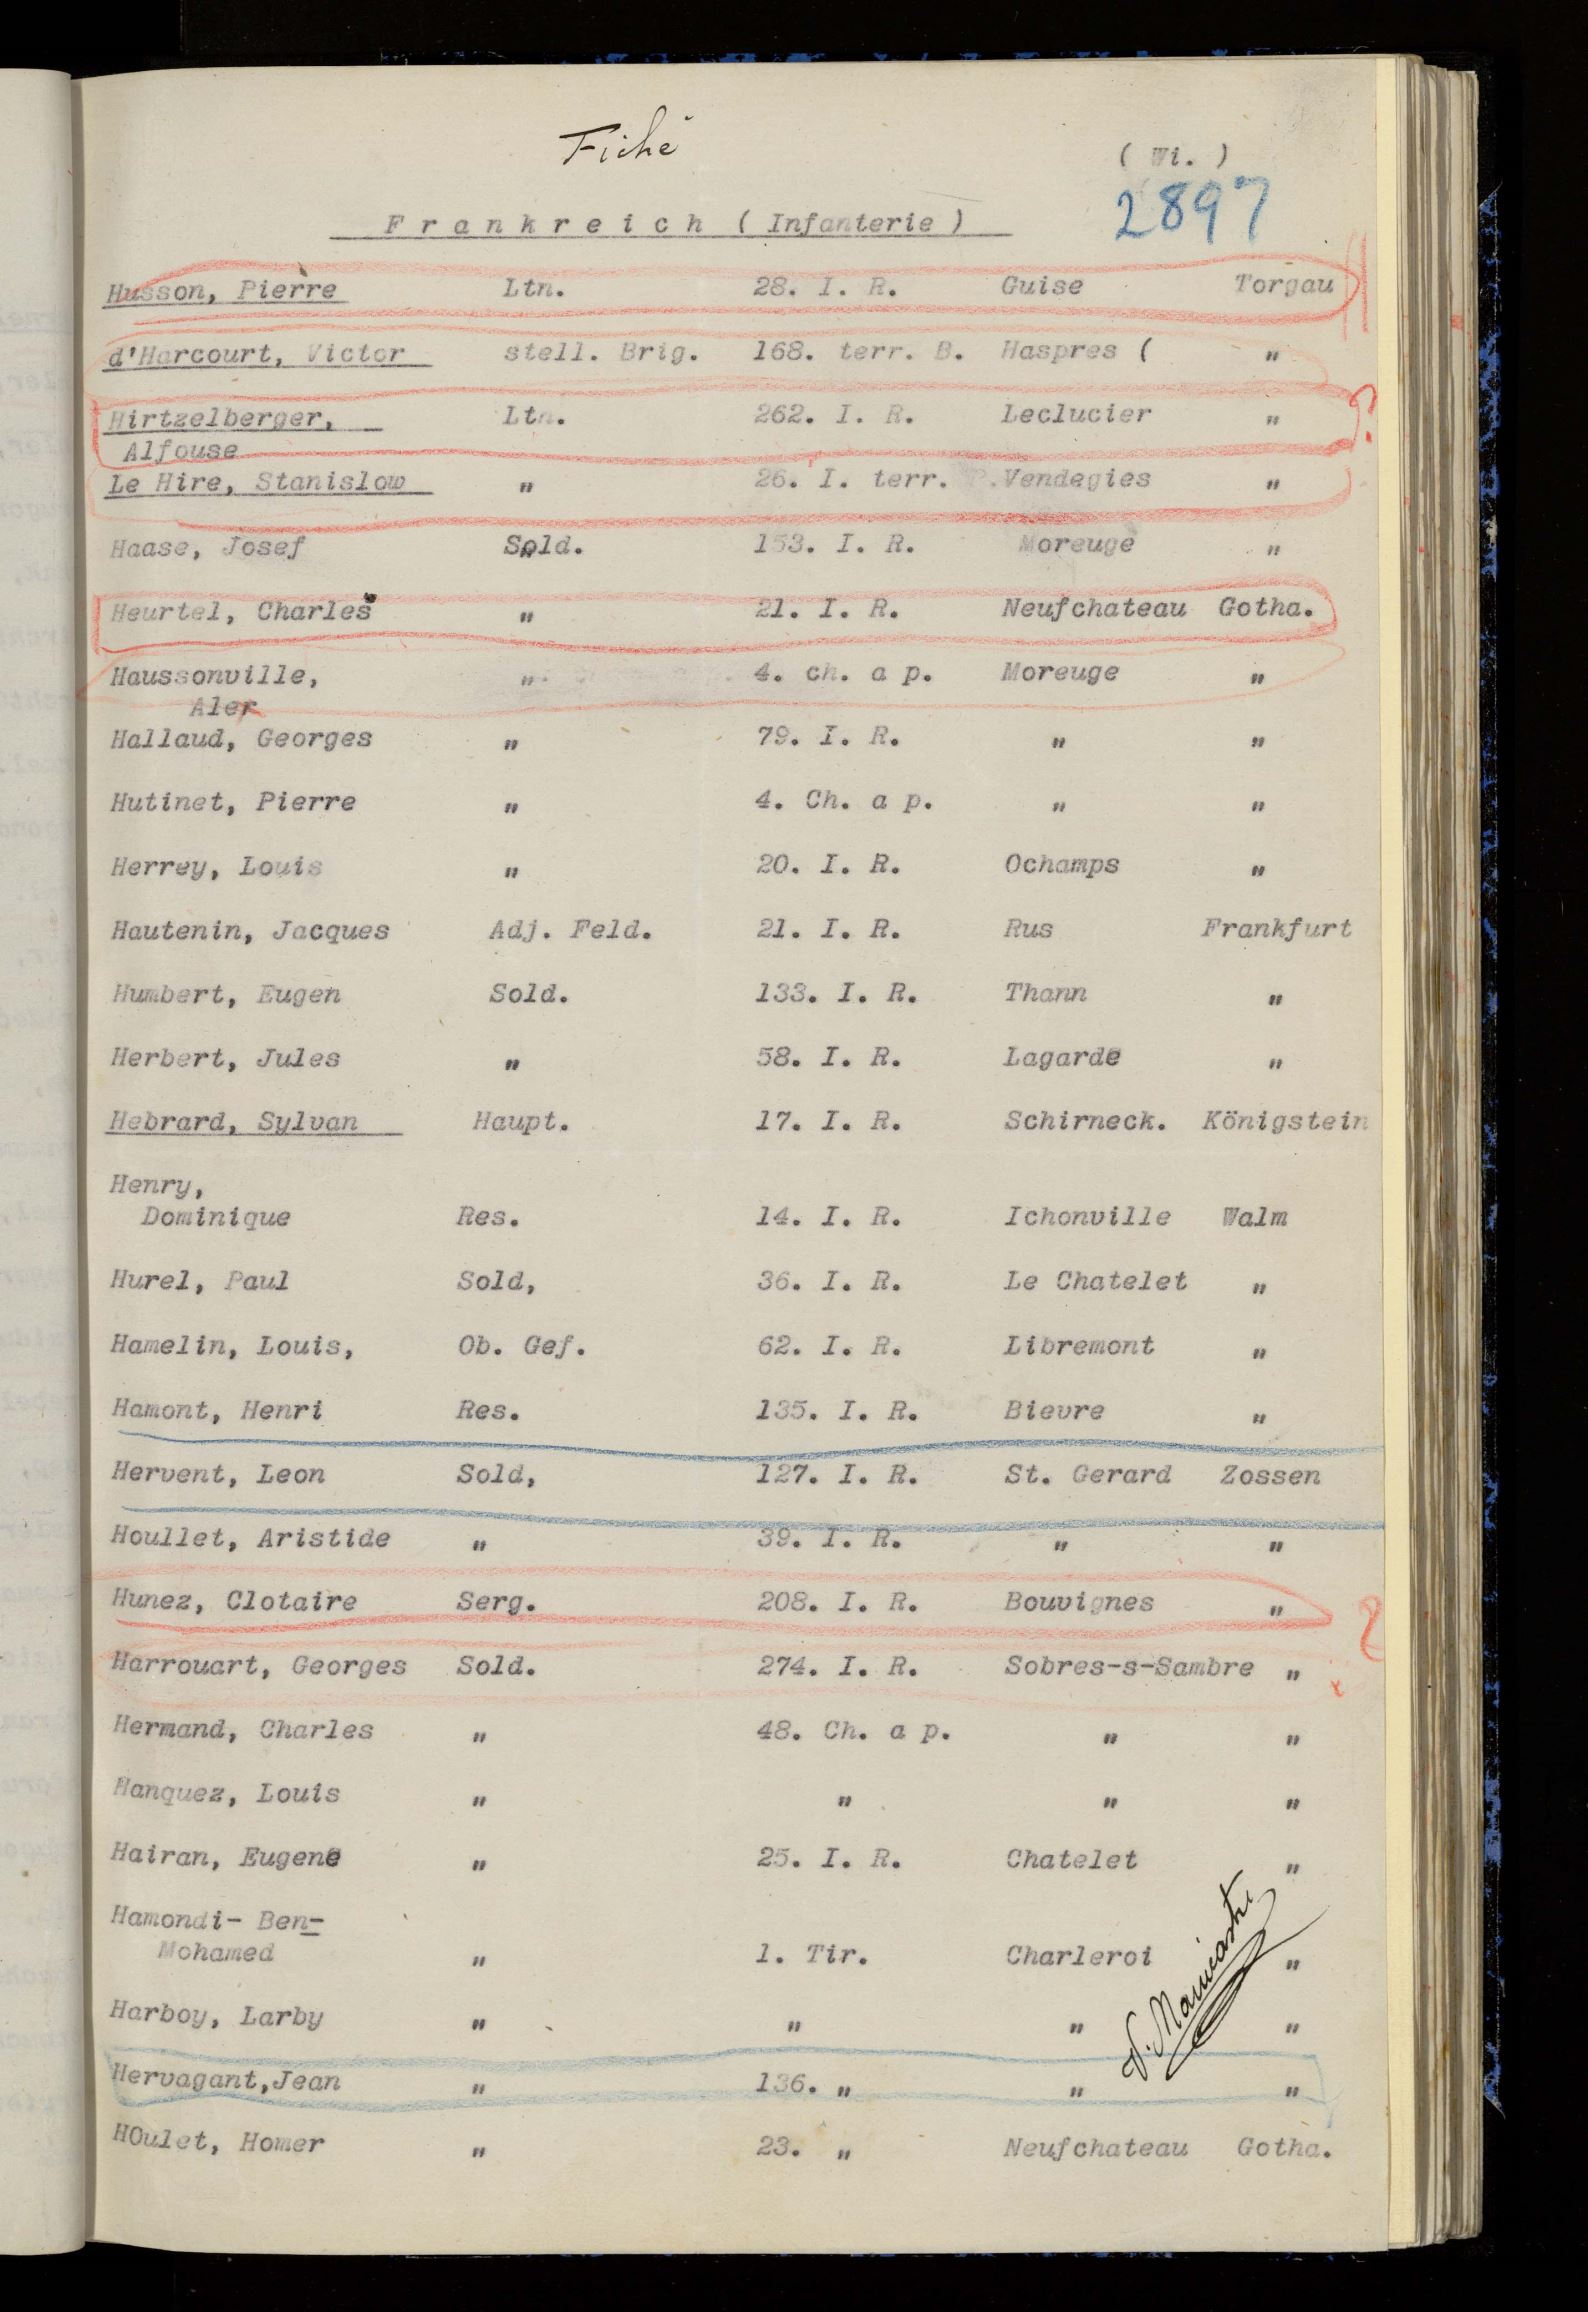 Fiché
( Wi. )
2897
Frankreich ( Infanterie )
Husson, Pierre Ltn. 28. I. R. Guise Torgau
d'Harcourt, Victor stell. Brig. 168. terr. B. Haspres ( "
Hirtzelberger, Ltn. 262. I. R. Leclucier "
Alfouse
Le Hire, Stanislow " 26. I. terr. Vendegies "
Haase, Josef Sold. 153. I. R. Moreuge "
Heurtel, Charles " 21. I. R. Neufchateau Gotha.
Haussonville, " 4. ch. a p. Moreuge "
Aler
Hallaud, Georges " 79. I. R. " "
Hutinet, Pierre " 4. Ch. a p. " "
Herrey, Louis " 20. I. R. Ochamps "
Hautenin, Jacques Adj. Feld. 21. I. R. Rus Frankfurt
Humbert, Eugen Sold. 133. I. R. Thann "
Herbert, Jules " 58. I. R. Lagarde "
Hebrard, Sylvan Haupt. 17. I. R. Schirneck. Königstein
Henry,
Dominique Res. 14. I. R. Ichonville Walm
Hurel, Paul Sold, 36. I. R. Le Chatelet "
Hamelin, Louis, Ob. Gef. 62. I. R. Libremont "
Hamont, Henri Res. 135. I. R. Bievre "
Hervent, Leon Sold, 127. I. R. St. Gerard Zossen
Houllet, Aristide " 39. I. R. " "
Hunez, Clotaire Serg. 208. I. R. Bouvignes "
Harrouart, Georges Sold. 274. I. R. Sobres-s-Sambre "
Hermand, Charles " 48. Ch. a p. " "
Hanquez, Louis " " " "
Hairan, Eugene " 25. I. R. Chatelet "
Hamondi- Ben-
Mohamed " 1. Tir. Charleroi "
Harboy, Larby " " " "
Hervagant,Jean " 136. " " "
HOulet, Homer " 23. " Neufchateau Gotha.